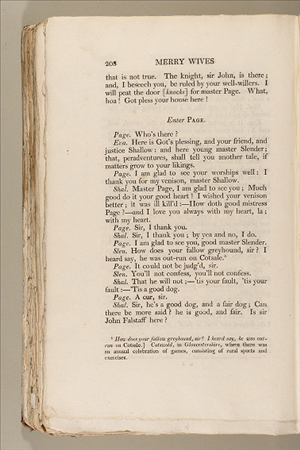 208 MERRY WIVES
that is not true. The knight, sir John, is there;
and, I beseech you, be ruled by your well-willers. I
will peat the door [knocks] for master Page. What,
hoa! Got pless your house here!
Enter PAGE.
Page. Who's there?
Eva. Here is Got's plessing, and your friend, and
justice Shallow: and here young master Slender;
that, peradventures, shall tell you another tale, if
matters grow to your likings.
Page. I am glad to see your worships well: I
thank you for my venison, master Shallow.
Shal. Master Page, I am glad to see you; Much
good do it your good heart! I wished your venison
better; it was ill kill'd:—How doth good mistress
Page?—and I love you always with my heart, la;
with my heart.
Page. Sir, I thank you.
Shal. Sir, I thank you; by yea and no, I do.
Page. I am glad to see you, good master Slender.
Slen. How does your fallow greyhound, sir? I
heard say, he was out-run on Cotsale.⁶
Page. It could not be judg'd, sir.
Slen. You'll not confess, you'll not confess.
Shal. That he will not;—'tis your fault, 'tis your
fault:—'Tis a good dog.
Page. A cur, sir.
Shal. Sir, he's a good dog, and a fair dog; Can
there be more said? he is good, and fair. Is sir
John Falstaff here?
⁶ How does your fallow greyhound, sir? I heard say, he was out-
run on Cotsale.] Cotswold, in Glocestershire, where there was
an annual celebration of games, consisting of rural sports and
exercises.